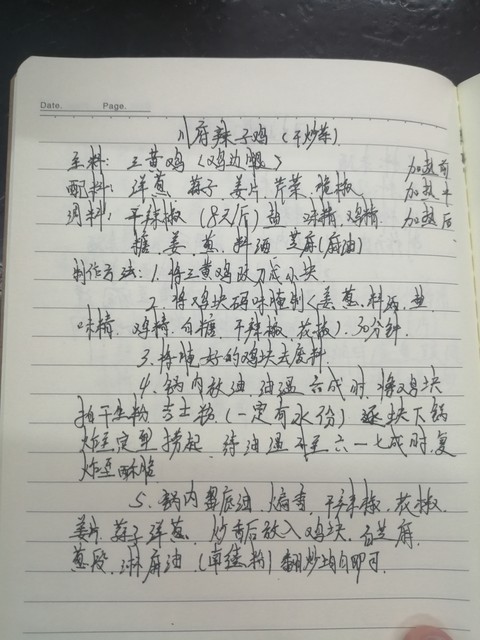 Date. Page.
川府辣子鸡（干炒菜）
主料：三黄鸡（鸡边腿） 加热前
配料：洋葱 蒜子 姜片 芹菜 脆椒 加热中
调料：干辣椒 盐 味精 鸡精 加热后
糖 姜 葱 料酒 芝麻(麻油)
制作方法：1、将三黄鸡改刀成小块
2、将鸡块码味腌制（姜 葱 料酒 盐
味精 鸡精 白糖 干辣椒 花椒）30分钟
3、将腌好的鸡块去废料
4、锅内放油 油温六成时 将鸡块
拍干生粉 吉士粉（一定有水份）逐块下锅
炸至定型捞起 待油温升至六－七成时 复
炸至酥脆
5、锅内留底油 煸香 干辣椒 花椒
姜片 蒜子 洋葱 炒香后放入鸡块 白芝麻
葱段 淋麻油 翻炒均匀即可